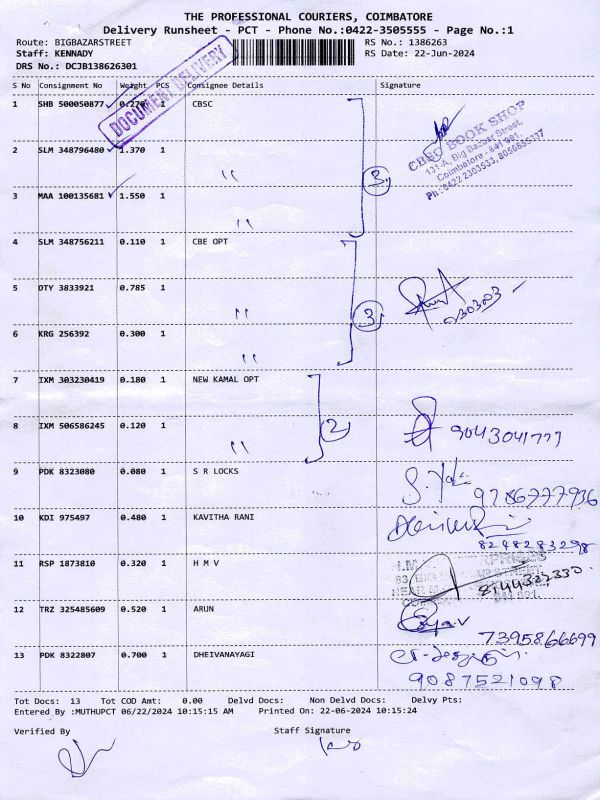 THE PROFESSIONAL COURIERS, COIMBATORE
Delivery Runsheet - PCT - Phone No.:0422-3505555 - Page No.:1
Route: BIGBAZARSTREET RS No.: 1386263
Staff: KENNADY RS Date: 22-Jun-2024
DRS No.: DCJB138626301
DOCUMENT DELIVERY
S No Consignment No Weight PCS Consignee Details Signature
1 SHB 500050877 0.270 1 CBSC
CBSC BOOK SHOP
131-A, Big Bazaar Street,
Coimbatore - 641 001.
Ph : 0422 2303533,
2 SLM 348796480 1.370 1
"
3 MAA 100135681 1.550 1
"
3
4 SLM 348756211 0.110 1 CBE OPT
5 DTY 3833921 0.785 1
"
3
6 KRG 256392 0.300 1
"
7 IXM 303230419 0.180 1 NEW KAMAL OPT
8 IXM 506586245 0.120 1
"
2
9043041777
9 PDK 8323080 0.080 1 S R LOCKS
9786777936
10 KDI 975497 0.480 1 KAVITHA RANI
8248283298
11 RSP 1873810 0.320 1 H M V
12 TRZ 325485609 0.520 1 ARUN
7395866699
13 PDK 8322807 0.700 1 DHEIVANAYAGI
9087521098
Tot Docs: 13 Tot COD Amt: 0.00 Delvd Docs: Non Delvd Docs: Delvy Pts:
Entered By :MUTHUPCT 06/22/2024 10:15:15 AM Printed On: 22-06-2024 10:15:24
Verified By Staff Signature